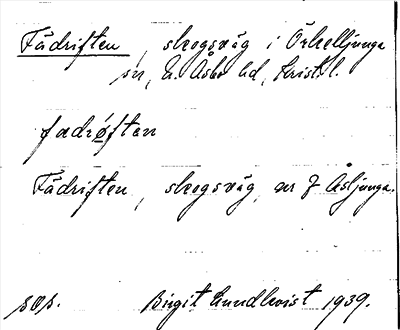 Fädriften, skogsväg i Örkelljunga
sn, N. Åsbo hd, Krist. l.
fædrøften
Fädriften, skogsväg nr 7 Åsljunga.
sOs. Birgit Lundkvist 1939.